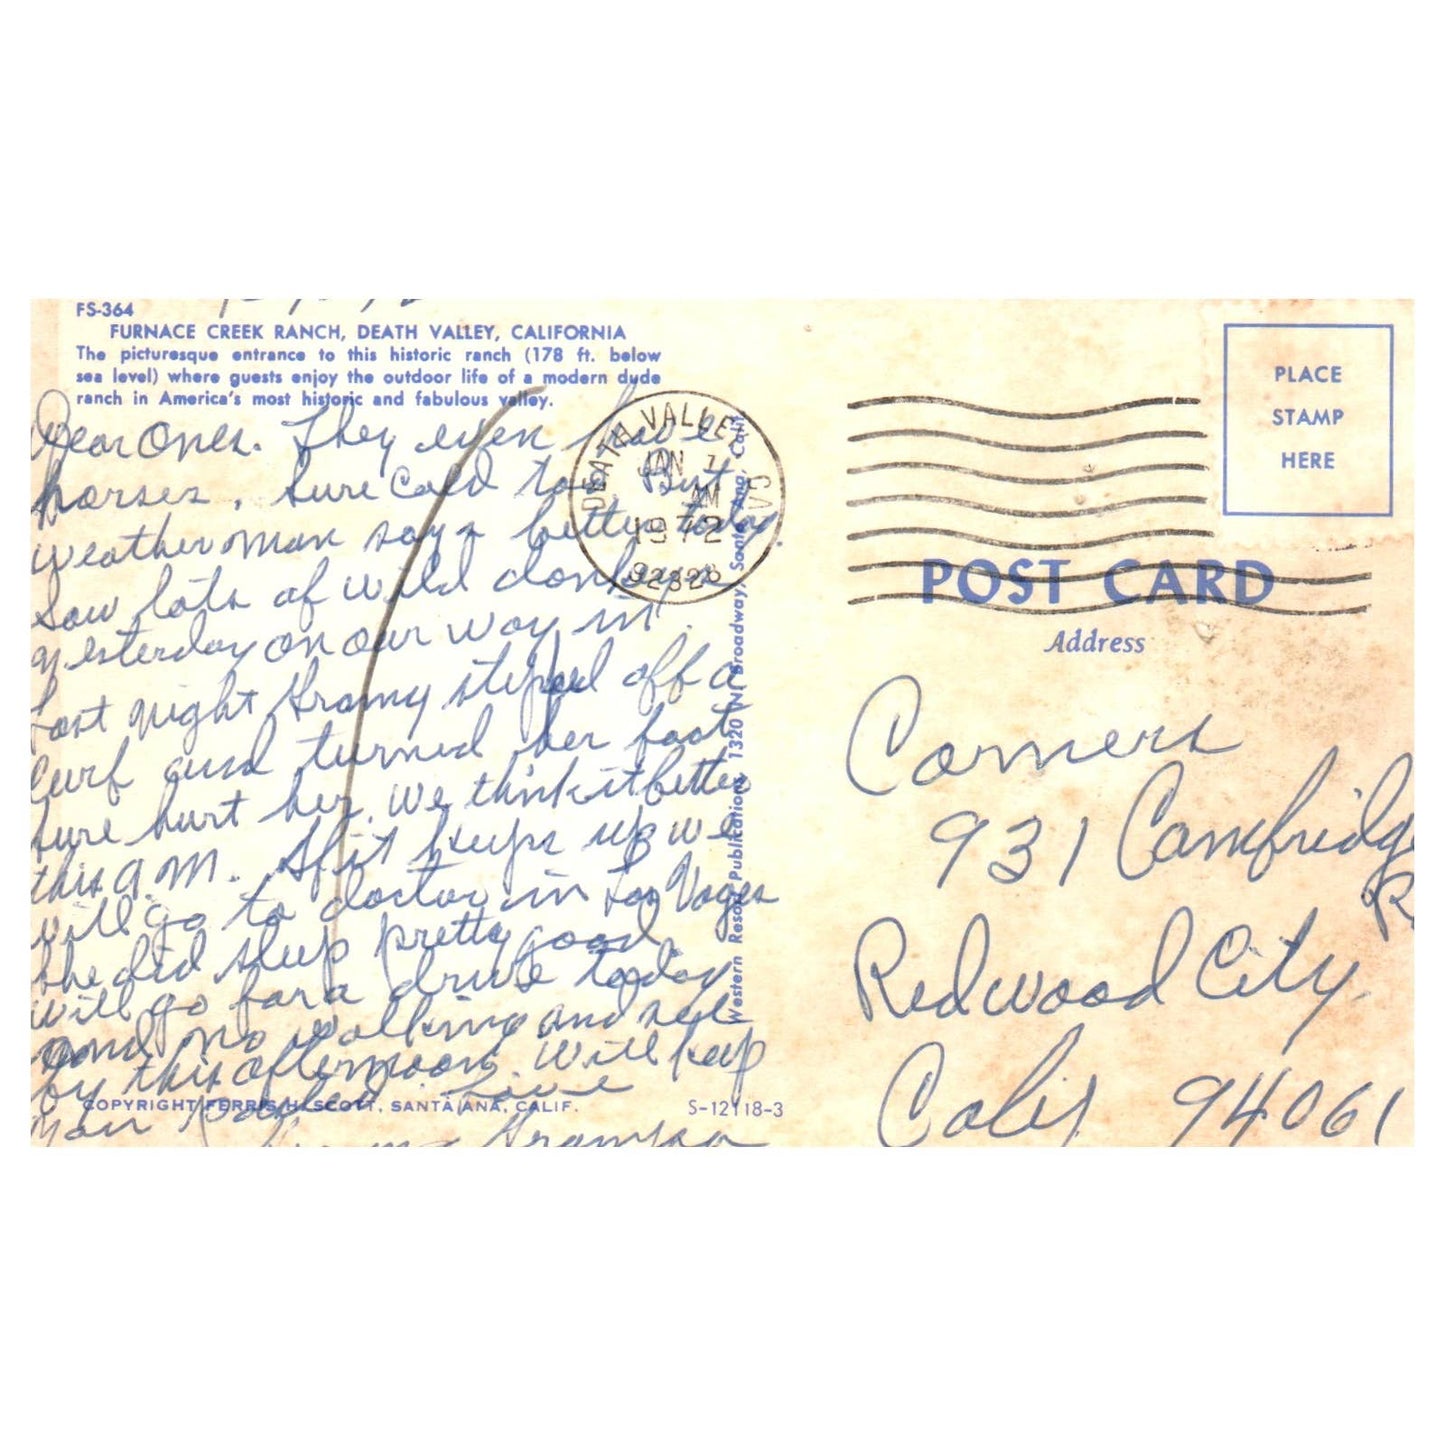 FS-364
FURNACE CREEK RANCH, DEATH VALLEY, CALIFORNIA
The picturesque entrance to this historic ranch (178 ft. below
sea level) where guests enjoy the outdoor life of a modern dude
ranch in America's most historic and fabulous valley.
Dear Ones. They even have
horses. Sure Cold too But
weatherman says better today.
Saw lots of wild donkeys
yesterday on our way in.
Last night Gramy stepped off a
curb and turned her foot
sure hurt her. We think it better
this A.M. If it keeps up we
will go to doctor in Las Vagas
she did sleep pretty good.
will go for a drive today
and no walking and see
by this afternoon. Will keep
you Love
Grampa
COPYRIGHT FERRIS H. SCOTT, SANTA ANA, CALIF.
S-12118-3
Western Resort Publications, 1320 N. Broadway, Santa Ana, Calif.
DEATH VALLEY CA
JAN 7
AM
1972
92328
PLACE
STAMP
HERE
POST CARD
Address
Comers
931 Cambridge
R
Redwood City
Calif 94061